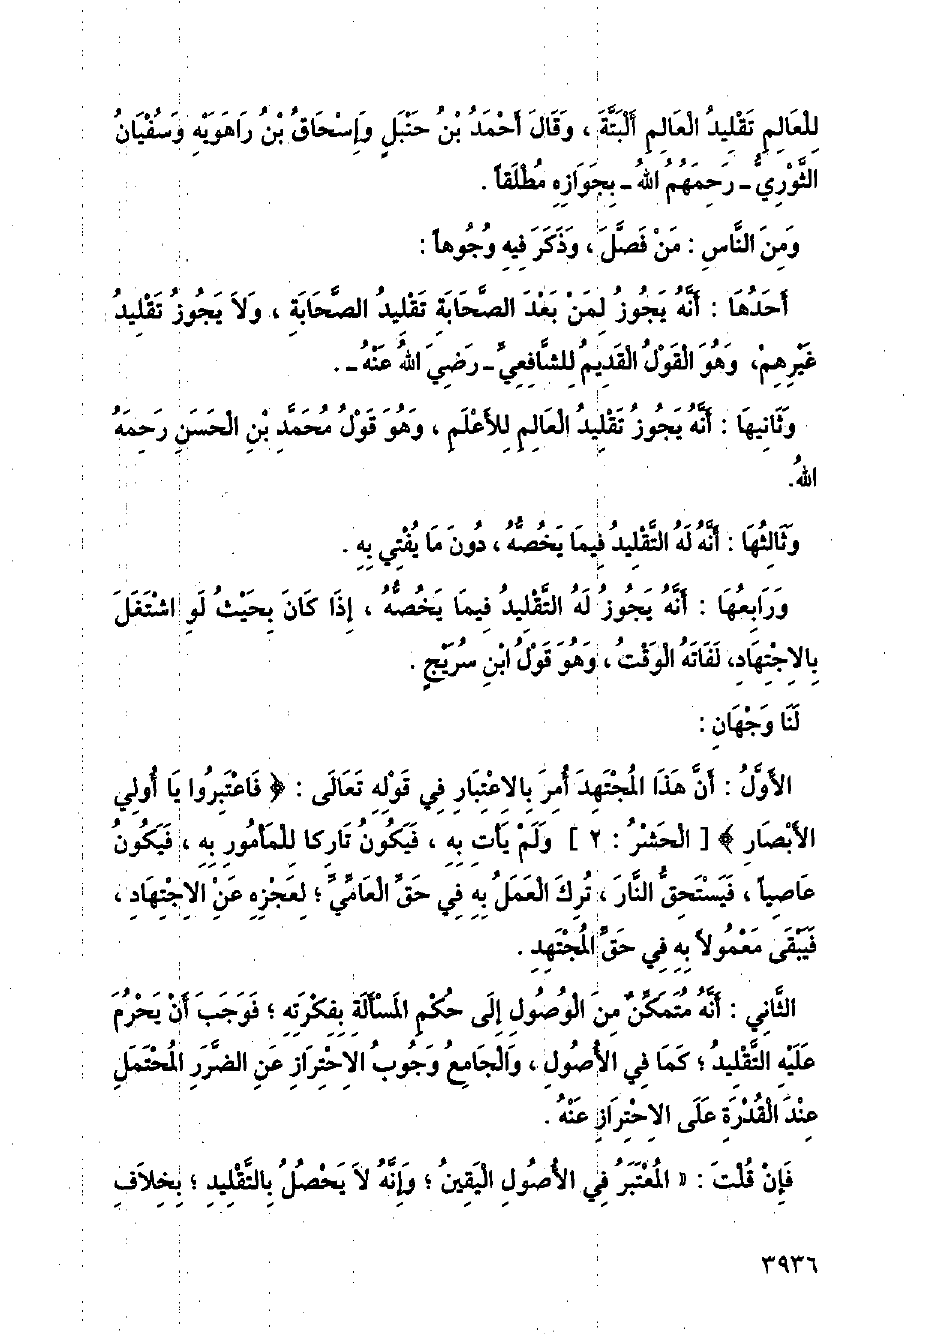 لِلْعَالِمِ تَقْلِيدُ الْعَالِمِ أَلْبَتَّةَ ، وَقَالَ أَحْمَدُ بْنُ حَنْبَلٍ وَإِسْحَاقُ بْنُ رَاهَوَيْهِ وَسُفْيَانُ
الثَّوْرِيُّ - رَحِمَهُمُ اللهُ - بِجَوَازِهِ مُطْلَقاً .
وَمِنَ النَّاسِ : مَنْ فَصَّلَ ، وَذَكَرَ فِيهِ وُجُوهاً :
أَحَدُهَا : أَنَّهُ يَجُوزُ لِمَنْ بَعْدَ الصَّحَابَةِ تَقْلِيدُ الصَّحَابَةِ ، وَلاَ يَجُوزُ تَقْلِيدُ
غَيْرِهِمْ، وَهُوَ الْقَوْلُ الْقَدِيمُ لِلشَّافِعِيِّ - رَضِيَ اللهُ عَنْهُ - .
وَثَانِيهَا : أَنَّهُ يَجُوزُ تَقْلِيدُ الْعَالِمِ لِلأَعْلَمِ ، وَهُوَ قَوْلُ مُحَمَّدِ بْنِ الْحَسَنِ رَحِمَهُ
اللهُ.
وَثَالِثُهَا : أَنَّهُ لَهُ التَّقْلِيدُ فِيمَا يَخُصُّهُ ، دُونَ مَا يُفْتِي بِهِ .
وَرَابِعُهَا : أَنَّهُ يَجُوزُ لَهُ التَّقْلِيدُ فِيمَا يَخُصُّهُ ، إِذَا كَانَ بِحَيْثُ لَوِ اشْتَغَلَ
بِالاِجْتِهَادِ، لَفَاتَهُ الْوَقْتُ ، وَهُوَ قَوْلُ ابْنِ سُرَيْجٍ .
لَنَا وَجْهَانِ :
الأَوَّلُ : أَنَّ هَذَا الْمُجْتَهِدَ أُمِرَ بِالاِعْتِبَارِ فِي قَوْلِهِ تَعَالَى : ﴿ فَاعْتَبِرُوا يَا أُولِي
الأَبْصَارِ ﴾ [ الْحَشْرُ : ٢ ] وَلَمْ يَأْتِ بِهِ ، فَيَكُونُ تَارِكا لِلْمَأْمُورِ بِهِ ، فَيَكُونُ
عَاصِياً ، فَيَسْتَحِقُّ النَّارَ ، تُرِكَ الْعَمَلُ بِهِ فِي حَقِّ الْعَامِّيِّ ؛ لِعَجْزِهِ عَنْ الاِجْتِهَادِ ،
فَيَبْقَى مَعْمُولاً بِهِ فِي حَقِّ الْمُجْتَهِدِ .
الثَّانِي : أَنَّهُ مُتَمَكِّنٌ مِنَ الْوُصُولِ إِلَى حُكْمِ الْمَسْأَلَةِ بِفِكْرَتِهِ ؛ فَوَجَبَ أَنْ يَحْرُمَ
عَلَيْهِ التَّقْلِيدُ ؛ كَمَا فِي الأُصُولِ ، وَالْجَامِعُ وُجُوبُ الاِحْتِرَازِ عَنِ الضَّرَرِ الْمُحْتَمَلِ
عِنْدَ الْقُدْرَةِ عَلَى الاِحْتِرَازِ عَنْهُ .
فَإِنْ قُلْتَ : « الْمُعْتَبَرُ فِي الأُصُولِ الْيَقِينُ ؛ وَإِنَّهُ لاَ يَحْصُلُ بِالتَّقْلِيدِ ؛ بِخِلاَفِ
٣٩٣٦